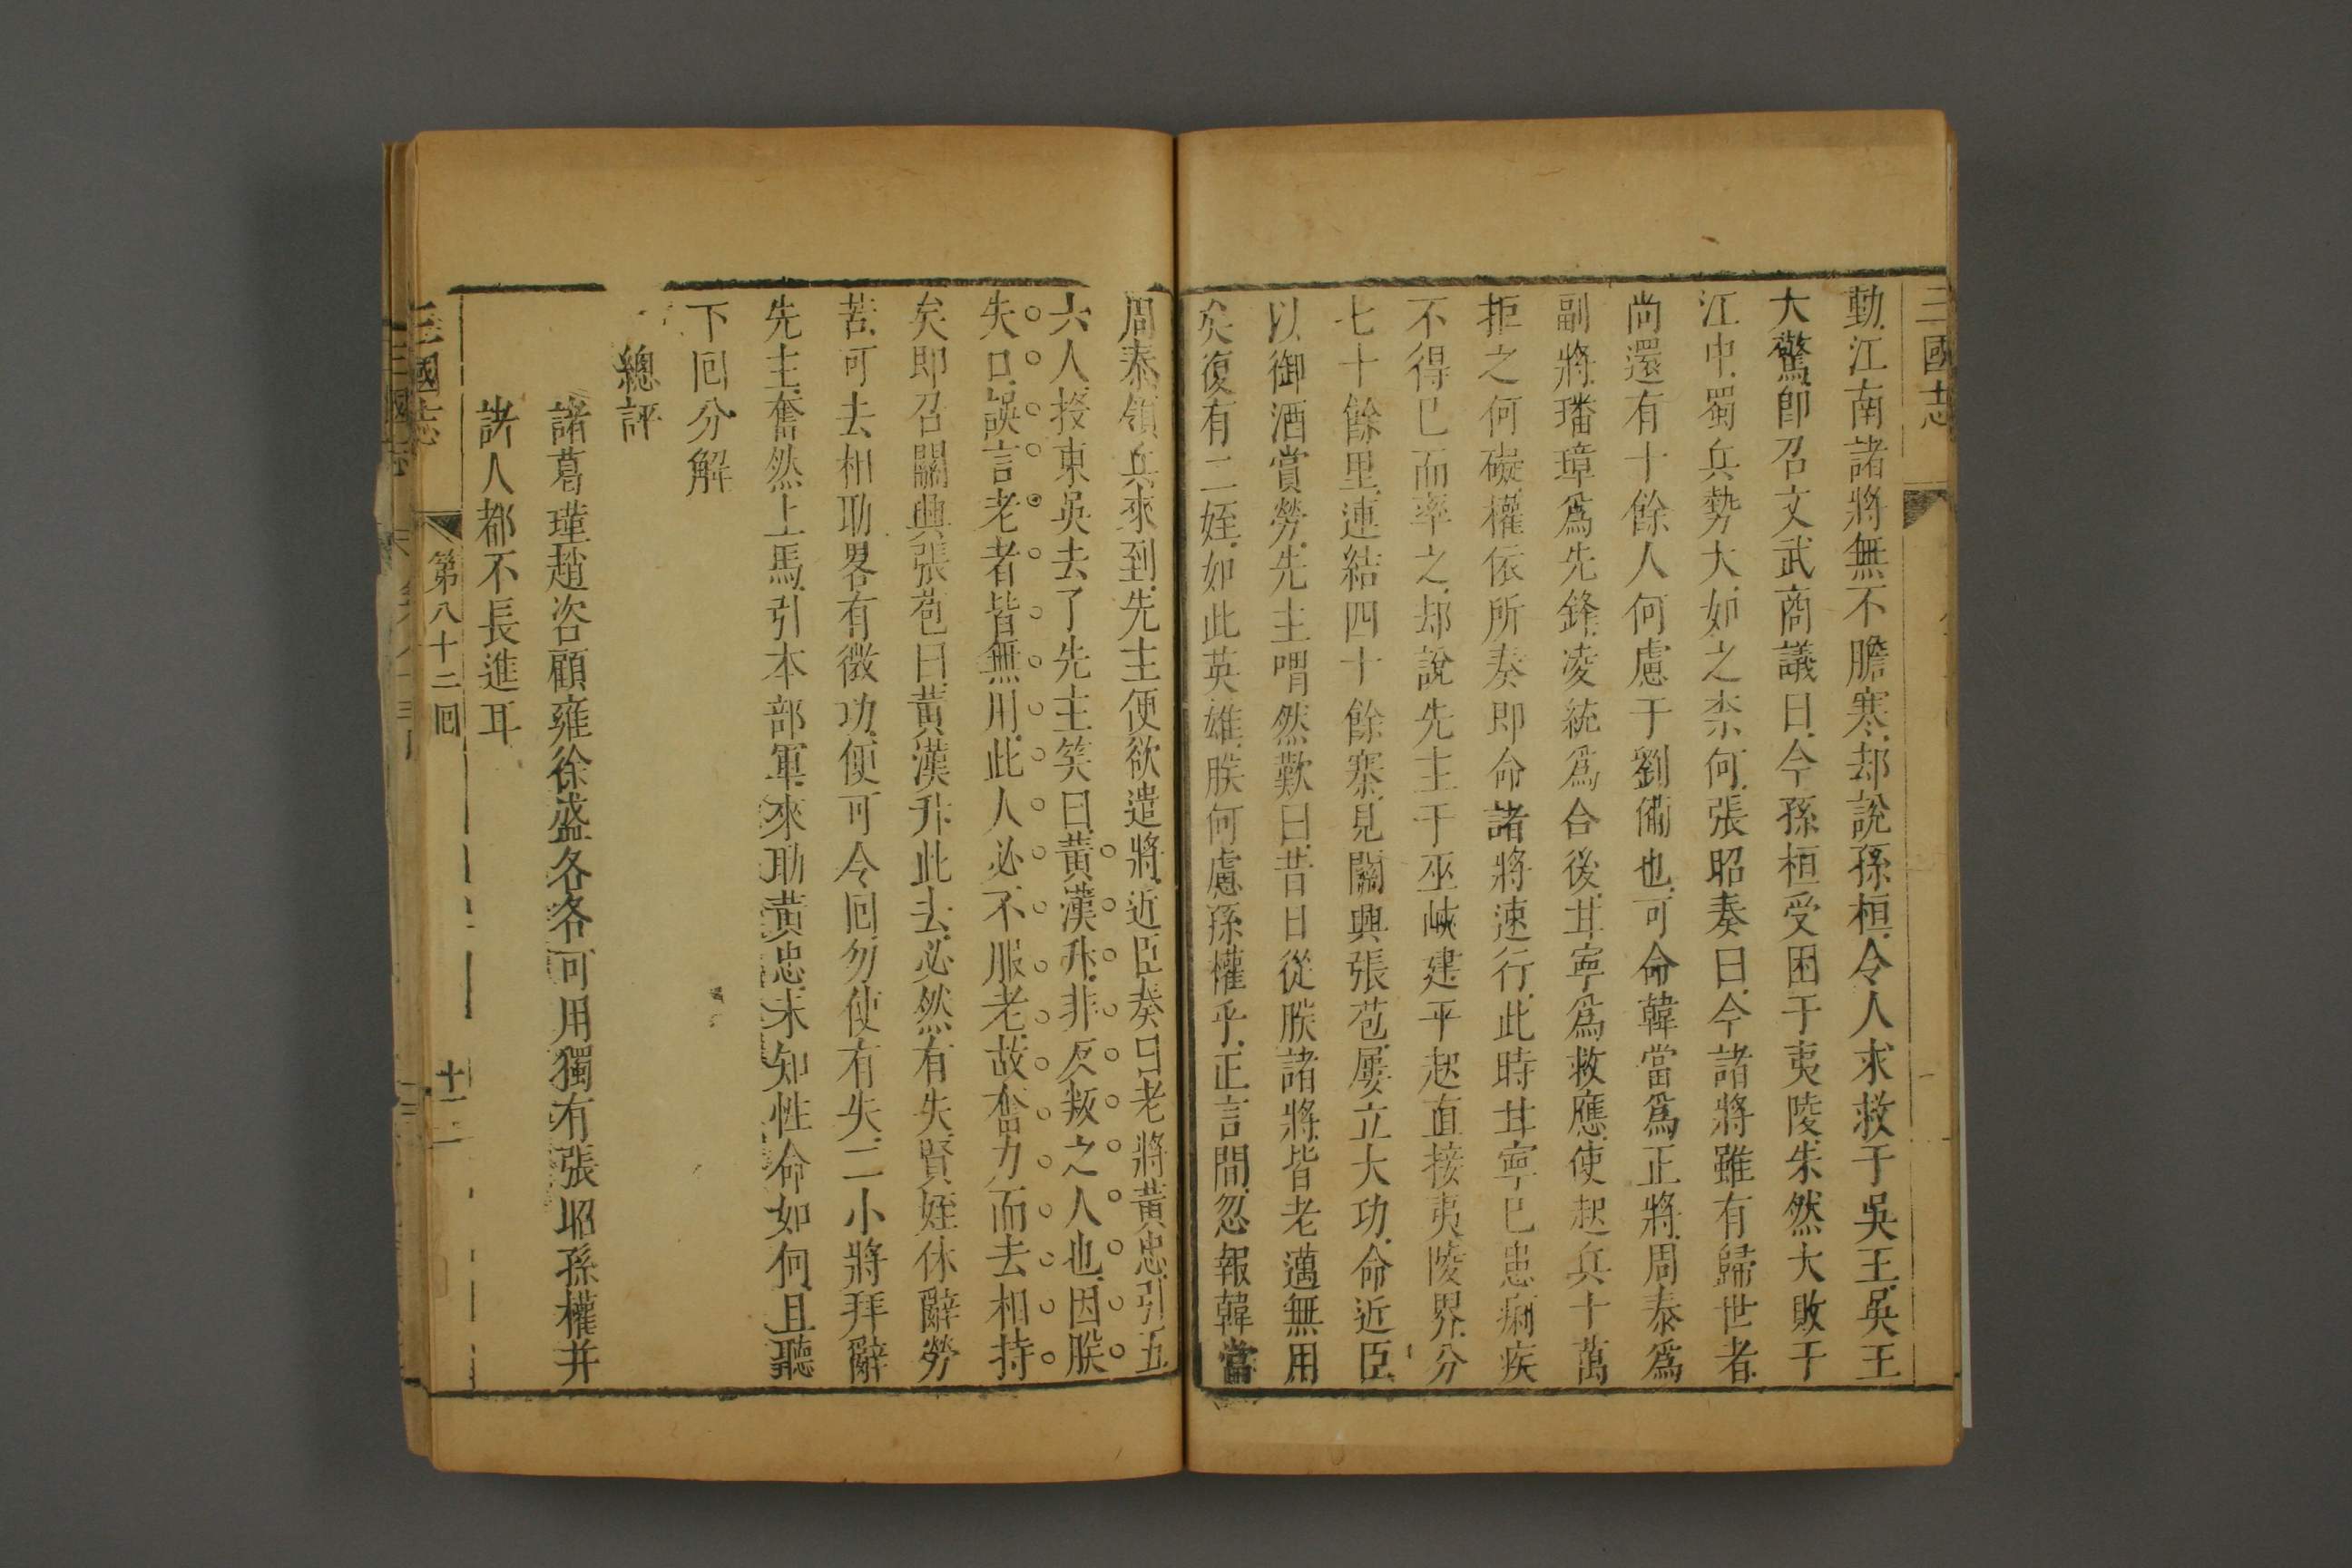 三國志
動江南諸將無不膽寒却說孫桓令人求救于吳王吳王
大驚卽召文武商議曰今孫桓受困于夷陵朱然大敗于
江中蜀兵勢大如之柰何張昭奏曰今諸將雖有歸世者
尚還有十餘人何慮于劉備也可命韓當爲正將周泰爲
副將璠璋爲先鋒凌統爲合後甘寧爲救應使起兵十萬
拒之何礙權依所奏即命諸將速行此時甘寧已患痢疾
不得已而率之却說先主于巫峽建平起直接夷陵界分
七十餘里連結四十餘寨見關興張苞屢立大功命近臣
以御酒賞勞先主喟然歎曰昔日從朕諸將皆老邁無用
矣復有二姪如此英雄朕何慮孫權乎正言間忽報韓當
周泰領兵來到先主便欲遣將近臣奏曰老將黃忠引五
六人投東吳去了先主笑曰黃漢升非反叛之人也因朕
失口誤言老者皆無用此人必不服老故奮力而去相持
矣即召關興張苞曰黃漢升此去必然有失賢姪休辭勞
苦可去相助畧有微功便可令回勿使有失二小將拜辭
先主奮然上馬引本部軍來助黃忠未知性命如何且聽
下回分解
總評
諸葛瑾趙咨顧雍徐盛各各可用獨有張昭孫權并
諸人都不長進耳
三國志
第八十二回
十二